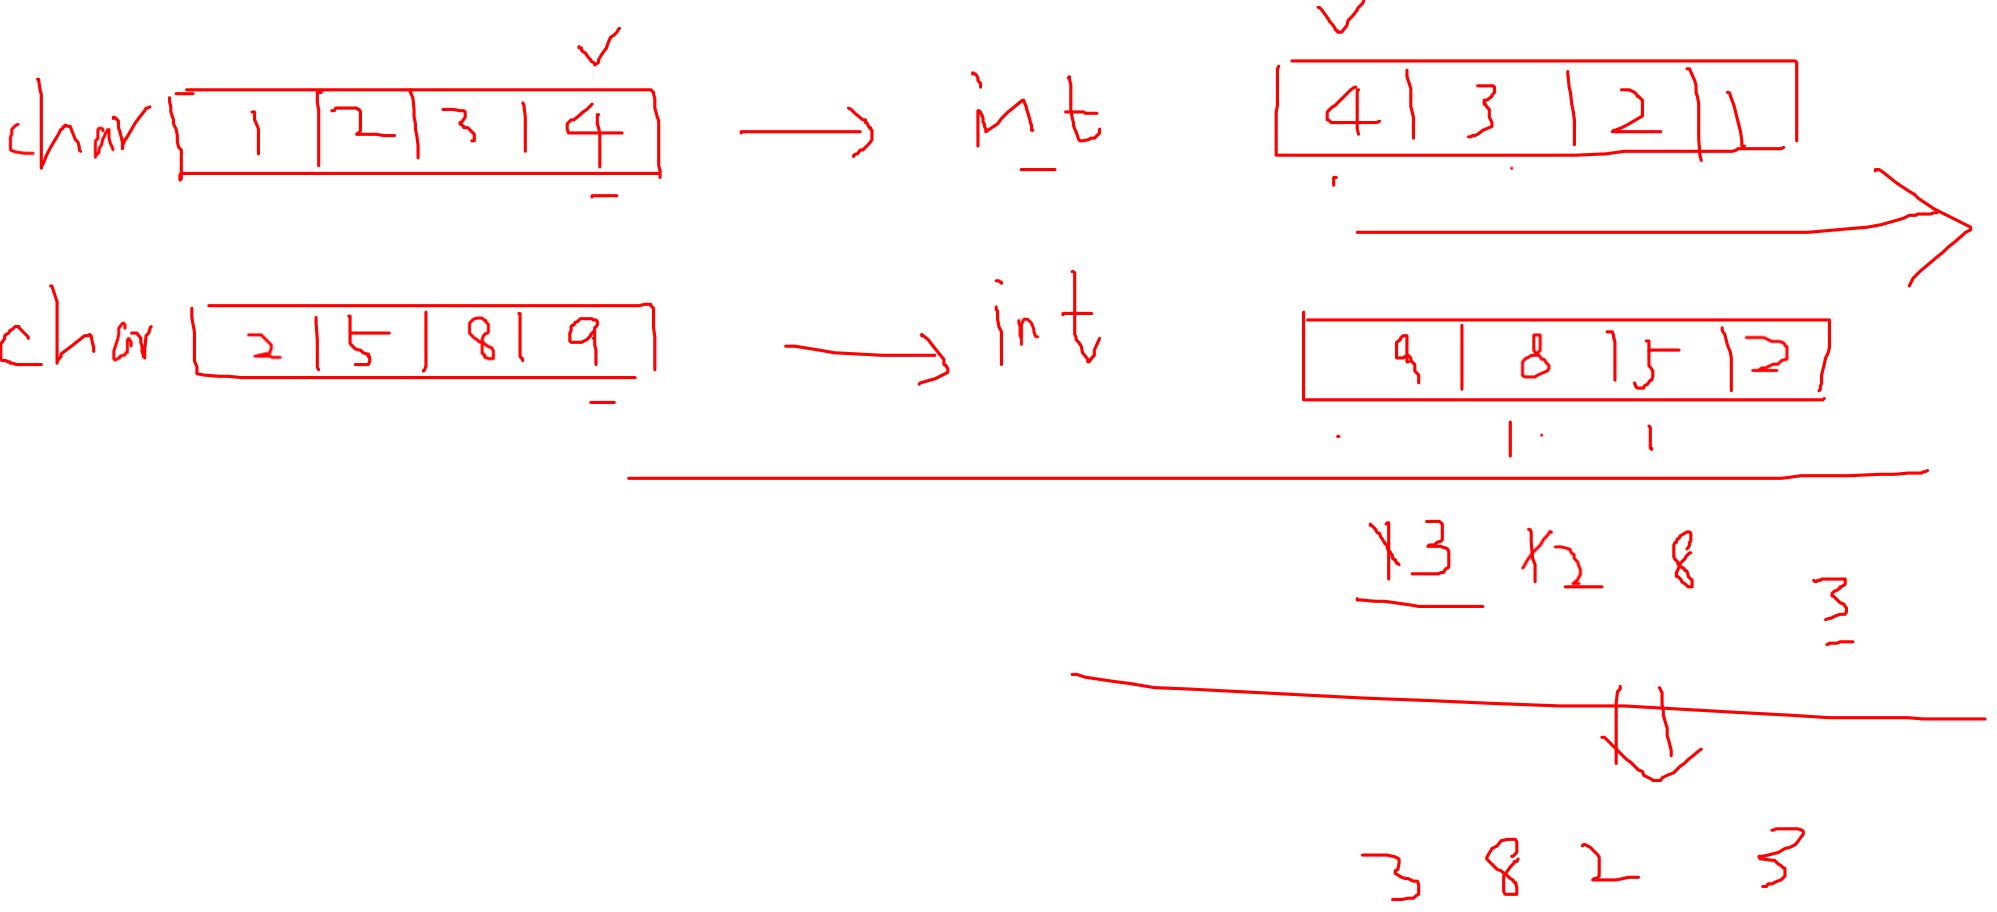 char 1 2 3 4 → int 4 3 2 1
char 2 5 8 9 → int 9 8 5 2
1 1
13 12 8 3
3 8 2 3